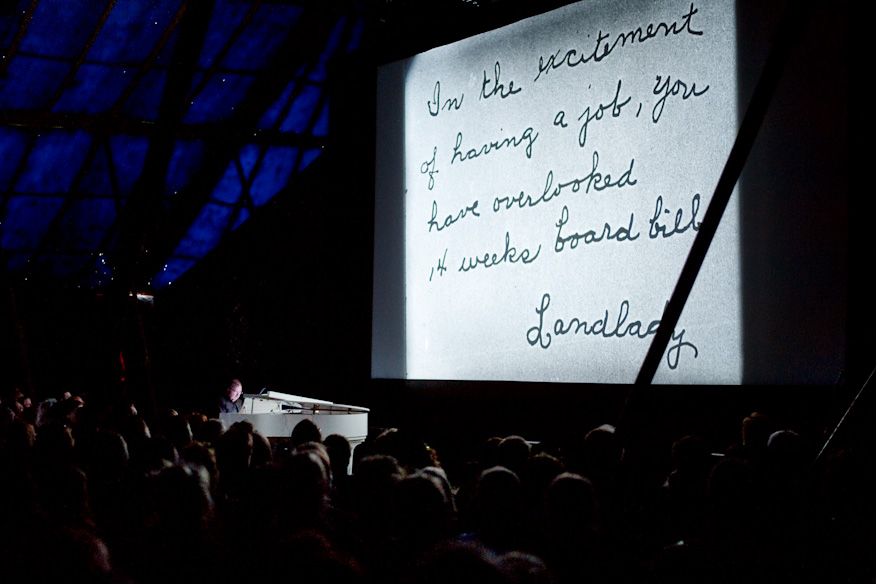 In the excitement
of having a job, you
have overlooked
14 weeks board bill
Landlady